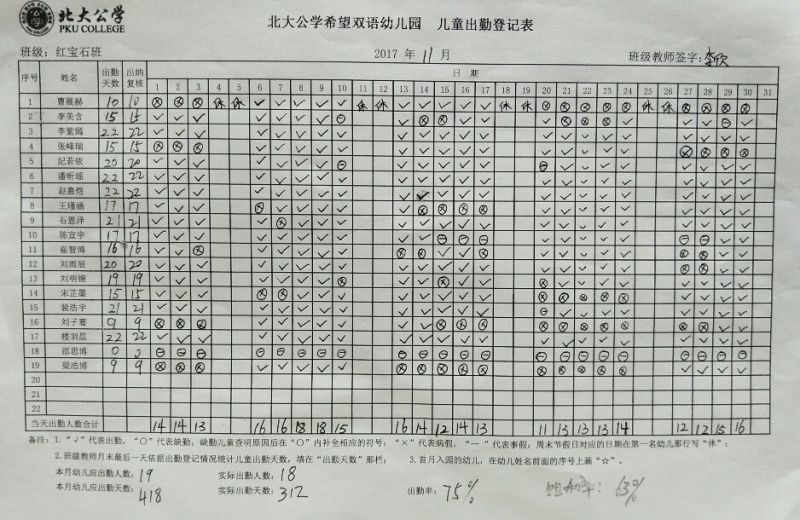 北大公学
PKU COLLEGE
北大公学希望双语幼儿园 儿童出勤登记表
班级：红宝石班 2017 年 11 月 班级教师签字：李欣
序号 姓名 出勤天数 出纳复核 日 期
1 2 3 4 5 6 7 8 9 10 11 12 13 14 15 16 17 18 19 20 21 22 23 24 25 26 27 28 29 30 31
1 曹展赫 10 10 ⊗ ⊗ ⊗ 休 休 ✓ ✓ ✓ ✓ ✓ 休 休 ✓ ✓ ✓ ✓ ✓ 休 休 ⊗ ⊗ ⊗ ⊗ ⊗ 休 休 ⊗ ⊗ ⊗ ⊗
2 李芙含 15 15
3 李紫嫣 22 22
4 张峰瑞 15 15
5 纪若依 20 20
6 潘昕瑶 22 22
7 赵嘉煜 22 22
8 王瑾涵 17 17
9 石恩泽 21 21
10 陈宣宇 17 17
11 崔智博 16 16
12 刘雨辰 20 20
13 刘明锦 19 19
14 宋芷墨 15 15
15 裴浩宇 21 21
16 刘子骞 9 9
17 楼羽晨 22 22
18 邵思博 0 0
19 梁浩博 9 9
20
21
22
当天出勤人数合计 14 14 13 16 16 18 18 15 16 14 12 14 13 11 13 13 13 14 12 12 15 16
备注：1．“√”代表出勤，“○”代表缺勤；缺勤儿童查明原因后在“○”内补全相应的符号：“×”代表病假，“一”代表事假；周末节假日对应的日期在第一名幼儿那行写“休”；
2.班级教师月末最后一天依据出勤登记情况统计儿童出勤天数，填在“出勤天数”那栏； 3.首月入园的幼儿，在幼儿姓名前面的序号上画“☆”。
本月幼儿应出勤人数：19 实际出勤人数：18
本月幼儿应出勤天数：418 实际出勤天数：312 出勤率：75% 饱和率：63%